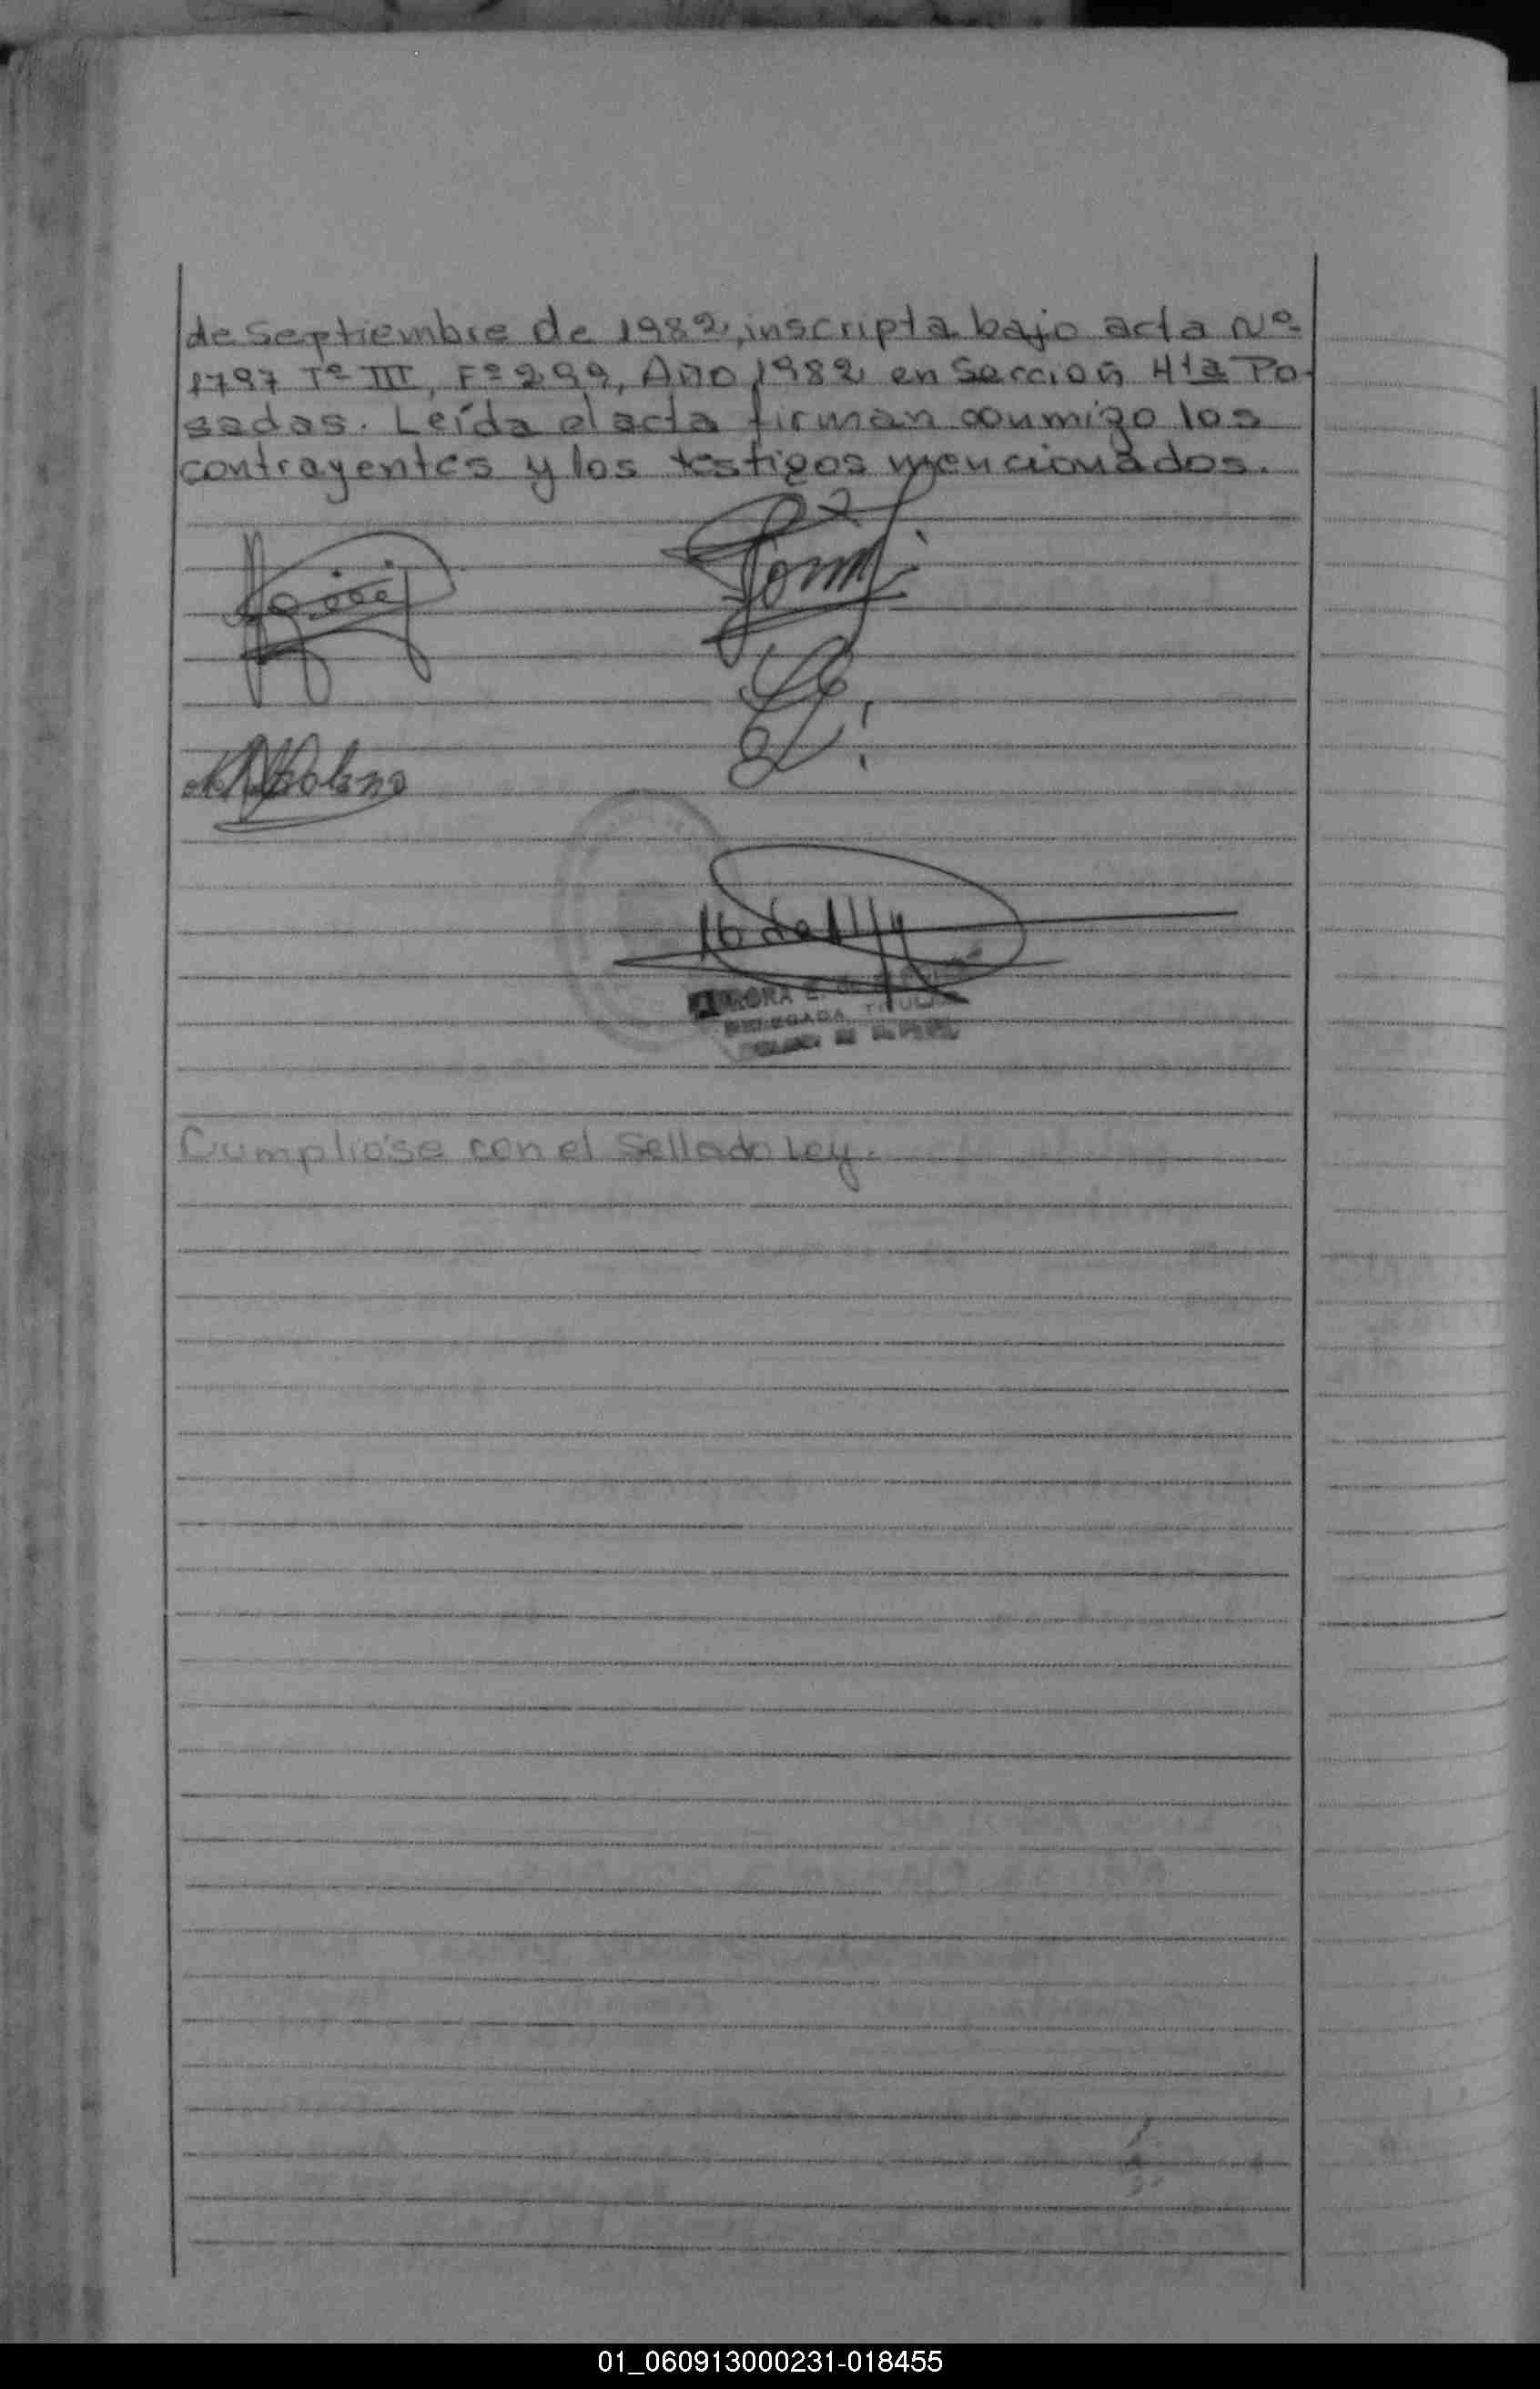 de Septiembre de 1982, inscripta bajo acta Nº
1797 Tº III, Fº 299, Año 1982 en Sección 41ª Po-
sadas. Leída el acta firman conmigo los
contrayentes y los testigos mencionados.
DELEGADA TITULAR
Cumplióse con el Sellado Ley.
01_060913000231-018455